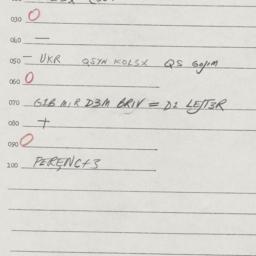 030 O
040 —
050 — UKR QSYN KOLSX QS GOJIM
060 O
070 GIB MIR D3M BRIV = DI LEJT3R
080 +
090 O
100 PERENC+3